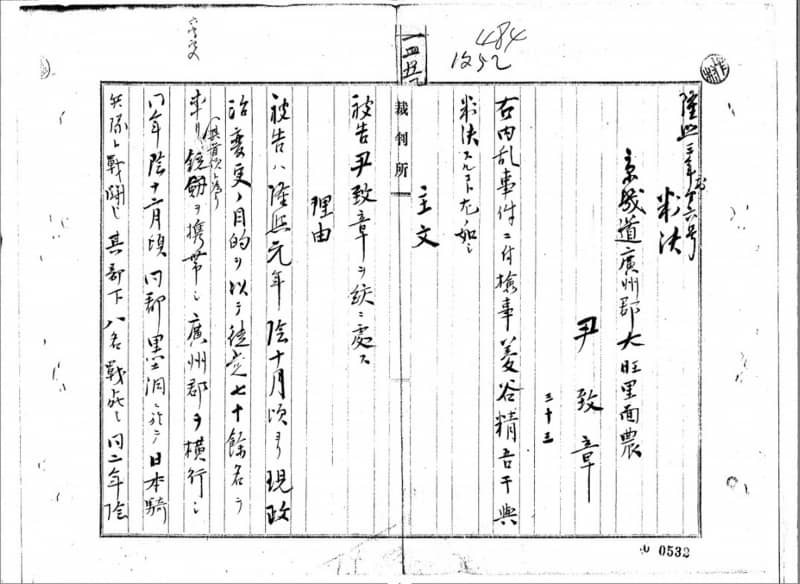 484
1252
隆熙三年刑第六号
判決
京畿道廣州郡大旺里面農
尹致章
三十三
右内乱事件ニ付検事菱谷精吾干與
判決スルコト左ノ如シ
主文
裁判所
被告尹致章ヲ絞ニ處ス
理由
被告ハ隆熙元年陰十月頃ヨリ現政
治変更ノ目的ヲ以テ徒党七十餘名ヲ
率ヒ銃劔ヲ携帯シ廣州郡ヲ横行シ
同年陰十二月頃同郡墨洞ニ於テ日本騎
兵隊ト戦闘シ其部下八名戦死シ同二年陰
0532